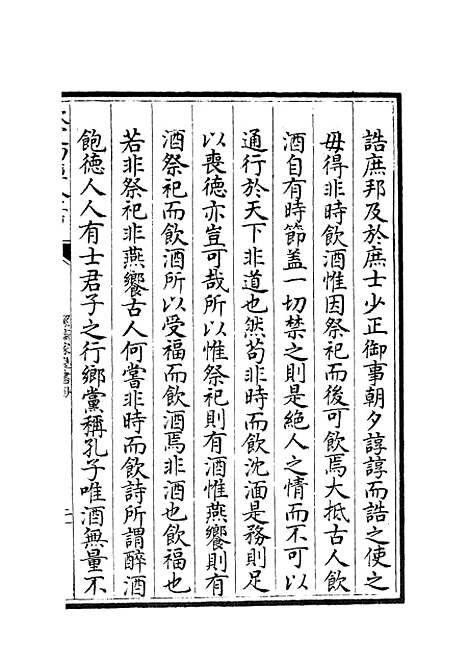 誥庶邦及於庶士少正御事朝夕諄諄而誥之使之
毋得非時飲酒惟因祭祀而後可飲焉大抵古人飲
酒自有時節盖一切禁之則是絶人之情而不可以
通行於天下非道也然苟非時而飲沈湎是務則足
以喪德亦豈可哉所以惟祭祀則有酒惟燕饗則有
酒祭祀而飲酒所以受福而飲酒焉非酒也飲福也
若非祭祀非燕饗古人何嘗非時而飲詩所謂醉酒
飽德人人有士君子之行鄉黨稱孔子唯酒無量不